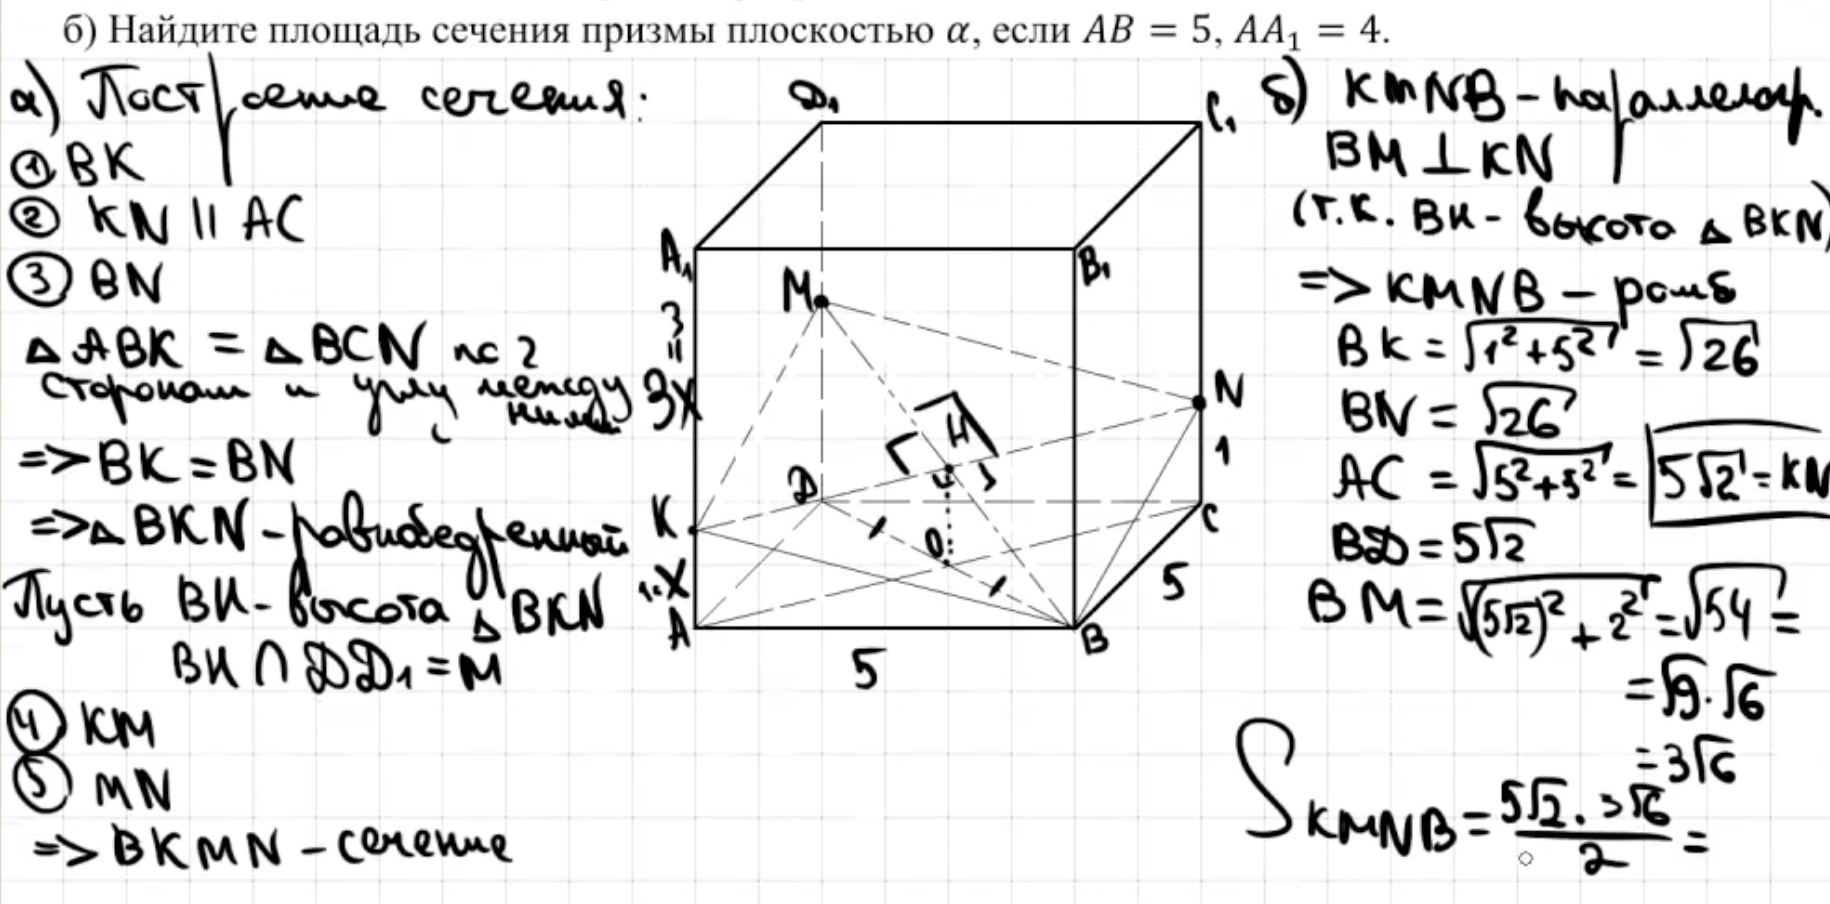 б) Найдите площадь сечения призмы плоскостью α, если AB = 5, AA₁ = 4.
а) Построение сечения:
① BK
② KN || AC
③ BN
△ABK = △BCN по 2
сторонам и углу между
ними
=> BK = BN
=> △BKN - равнобедренный
Пусть BH - высота △BKN
BH ∩ DD₁ = M
④ KM
⑤ MN
=> BKMN - сечение
D₁
C₁
A₁
B₁
M
3
=
3x
N
H
1
D
K
C
O
1=x
A
B
5
5
б) KMNB - параллелогр.
BM ⊥ KN
(т.к. BH - высота △ BKN)
=> KMNB - ромб
BK = √(1² + 5²) = √26
BN = √26
AC = √(5² + 5²) = 5√2 = KN
BD = 5√2
BM = √((5√2)² + 2²) = √54 =
= √9 · √6
= 3√6
S KMNB = (5√2 · 3√6)/2 =